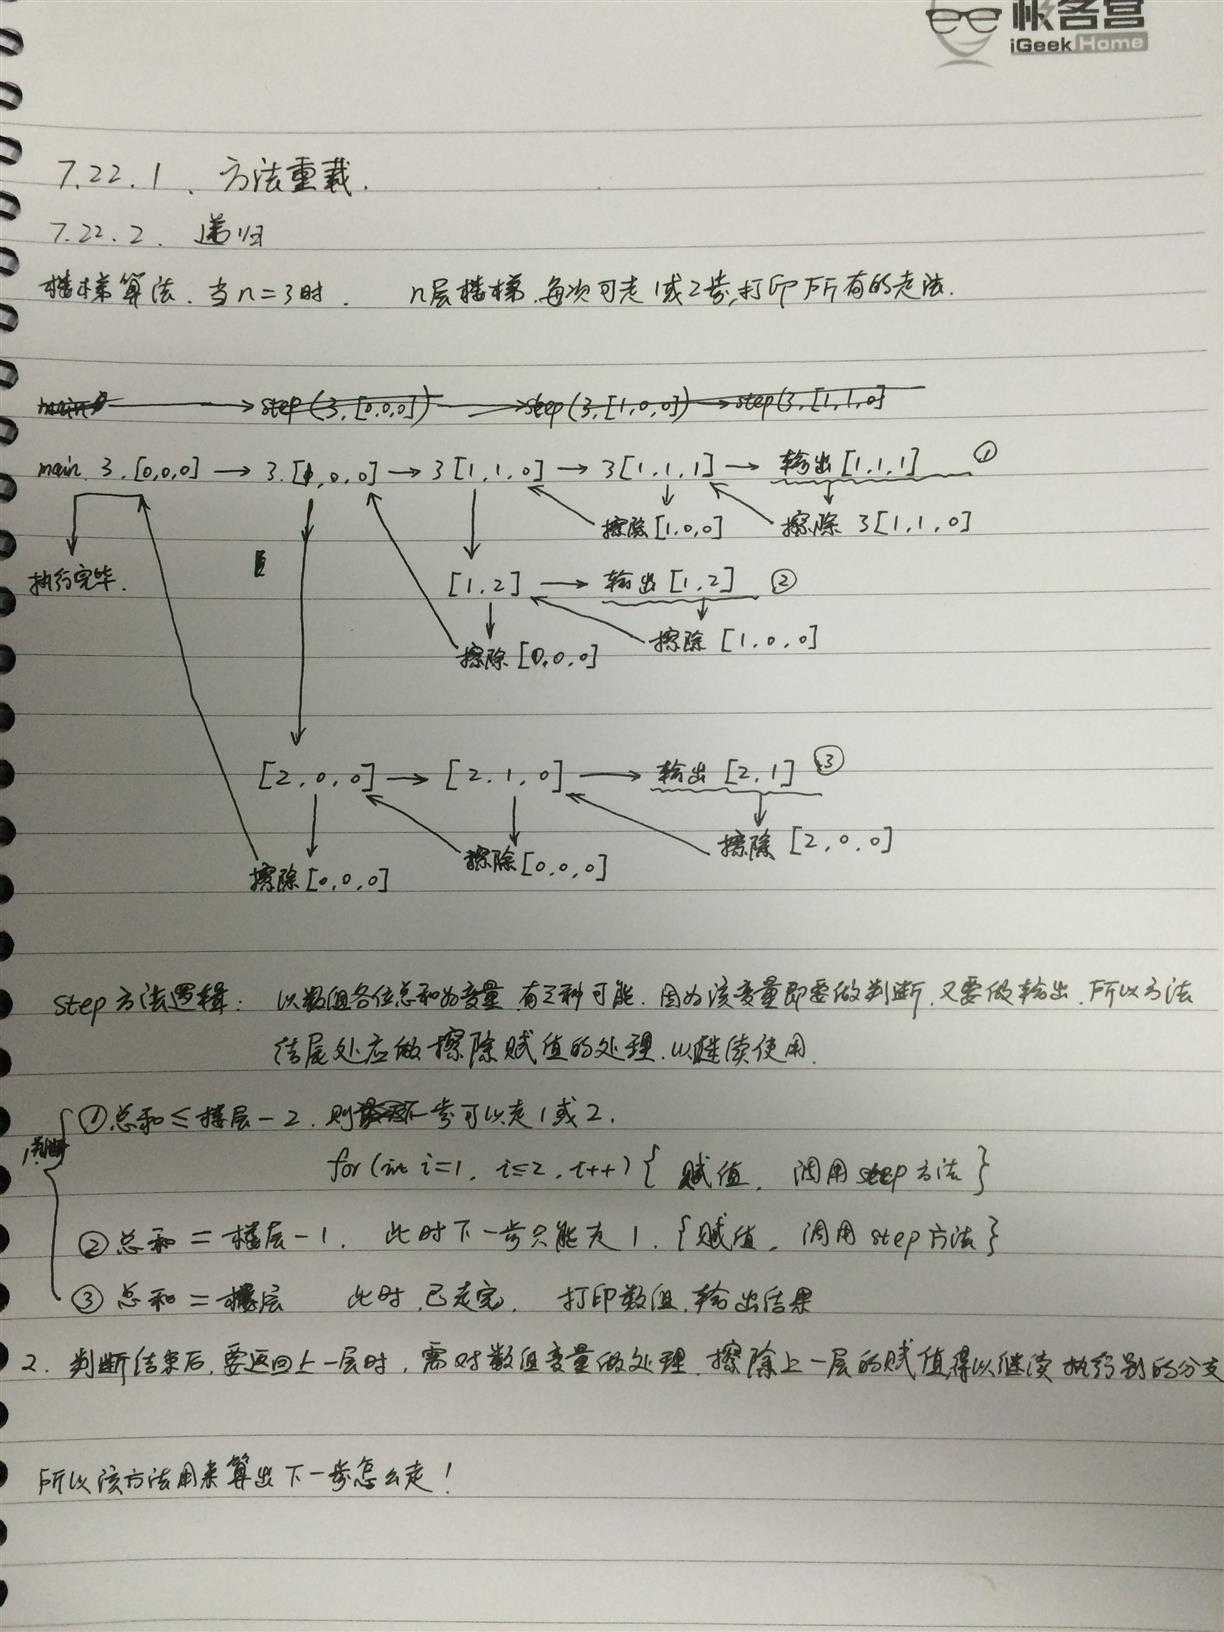 极客营
iGeek Home
7.22.1. 方法重载.
7.22.2. 递归
楼梯算法. 当n=3时. n层楼梯,每次可走1或2步,打印所有的走法.
main → step(3,[0,0,0]) → step(3,[1,0,0]) → step(3,[1,1,0]
main 3.[0,0,0] → 3.[1,0,0] → 3[1,1,0] → 3[1,1,1] → 输出[1,1,1] ①
擦除[1,0,0] 擦除 3[1,1,0]
执行完毕. [1,2] → 输出[1,2] ②
擦除[0,0,0] 擦除 [1,0,0]
[2,0,0] → [2,1,0] → 输出[2,1] ③
擦除[0,0,0] 擦除[0,0,0] 擦除 [2,0,0]
step方法逻辑: 以数组各位总和为变量,有三种可能. 因为该变量即要做判断,又要做输出,所以方法
结尾处应做擦除赋值的处理.以继续使用.
1.判断
①总和≤楼层-2. 则下一步可以走1或2.
for(int i=1, i≤2, i++){ 赋值, 调用step方法}
②总和=楼层-1. 此时下一步只能走1.{赋值, 调用step方法}
③总和=楼层 此时,已走完, 打印数组,输出结果
2. 判断结束后,要返回上一层时,需对数组变量做处理,擦除上一层的赋值,得以继续执行别的分支
所以该方法用来算出下一步怎么走!